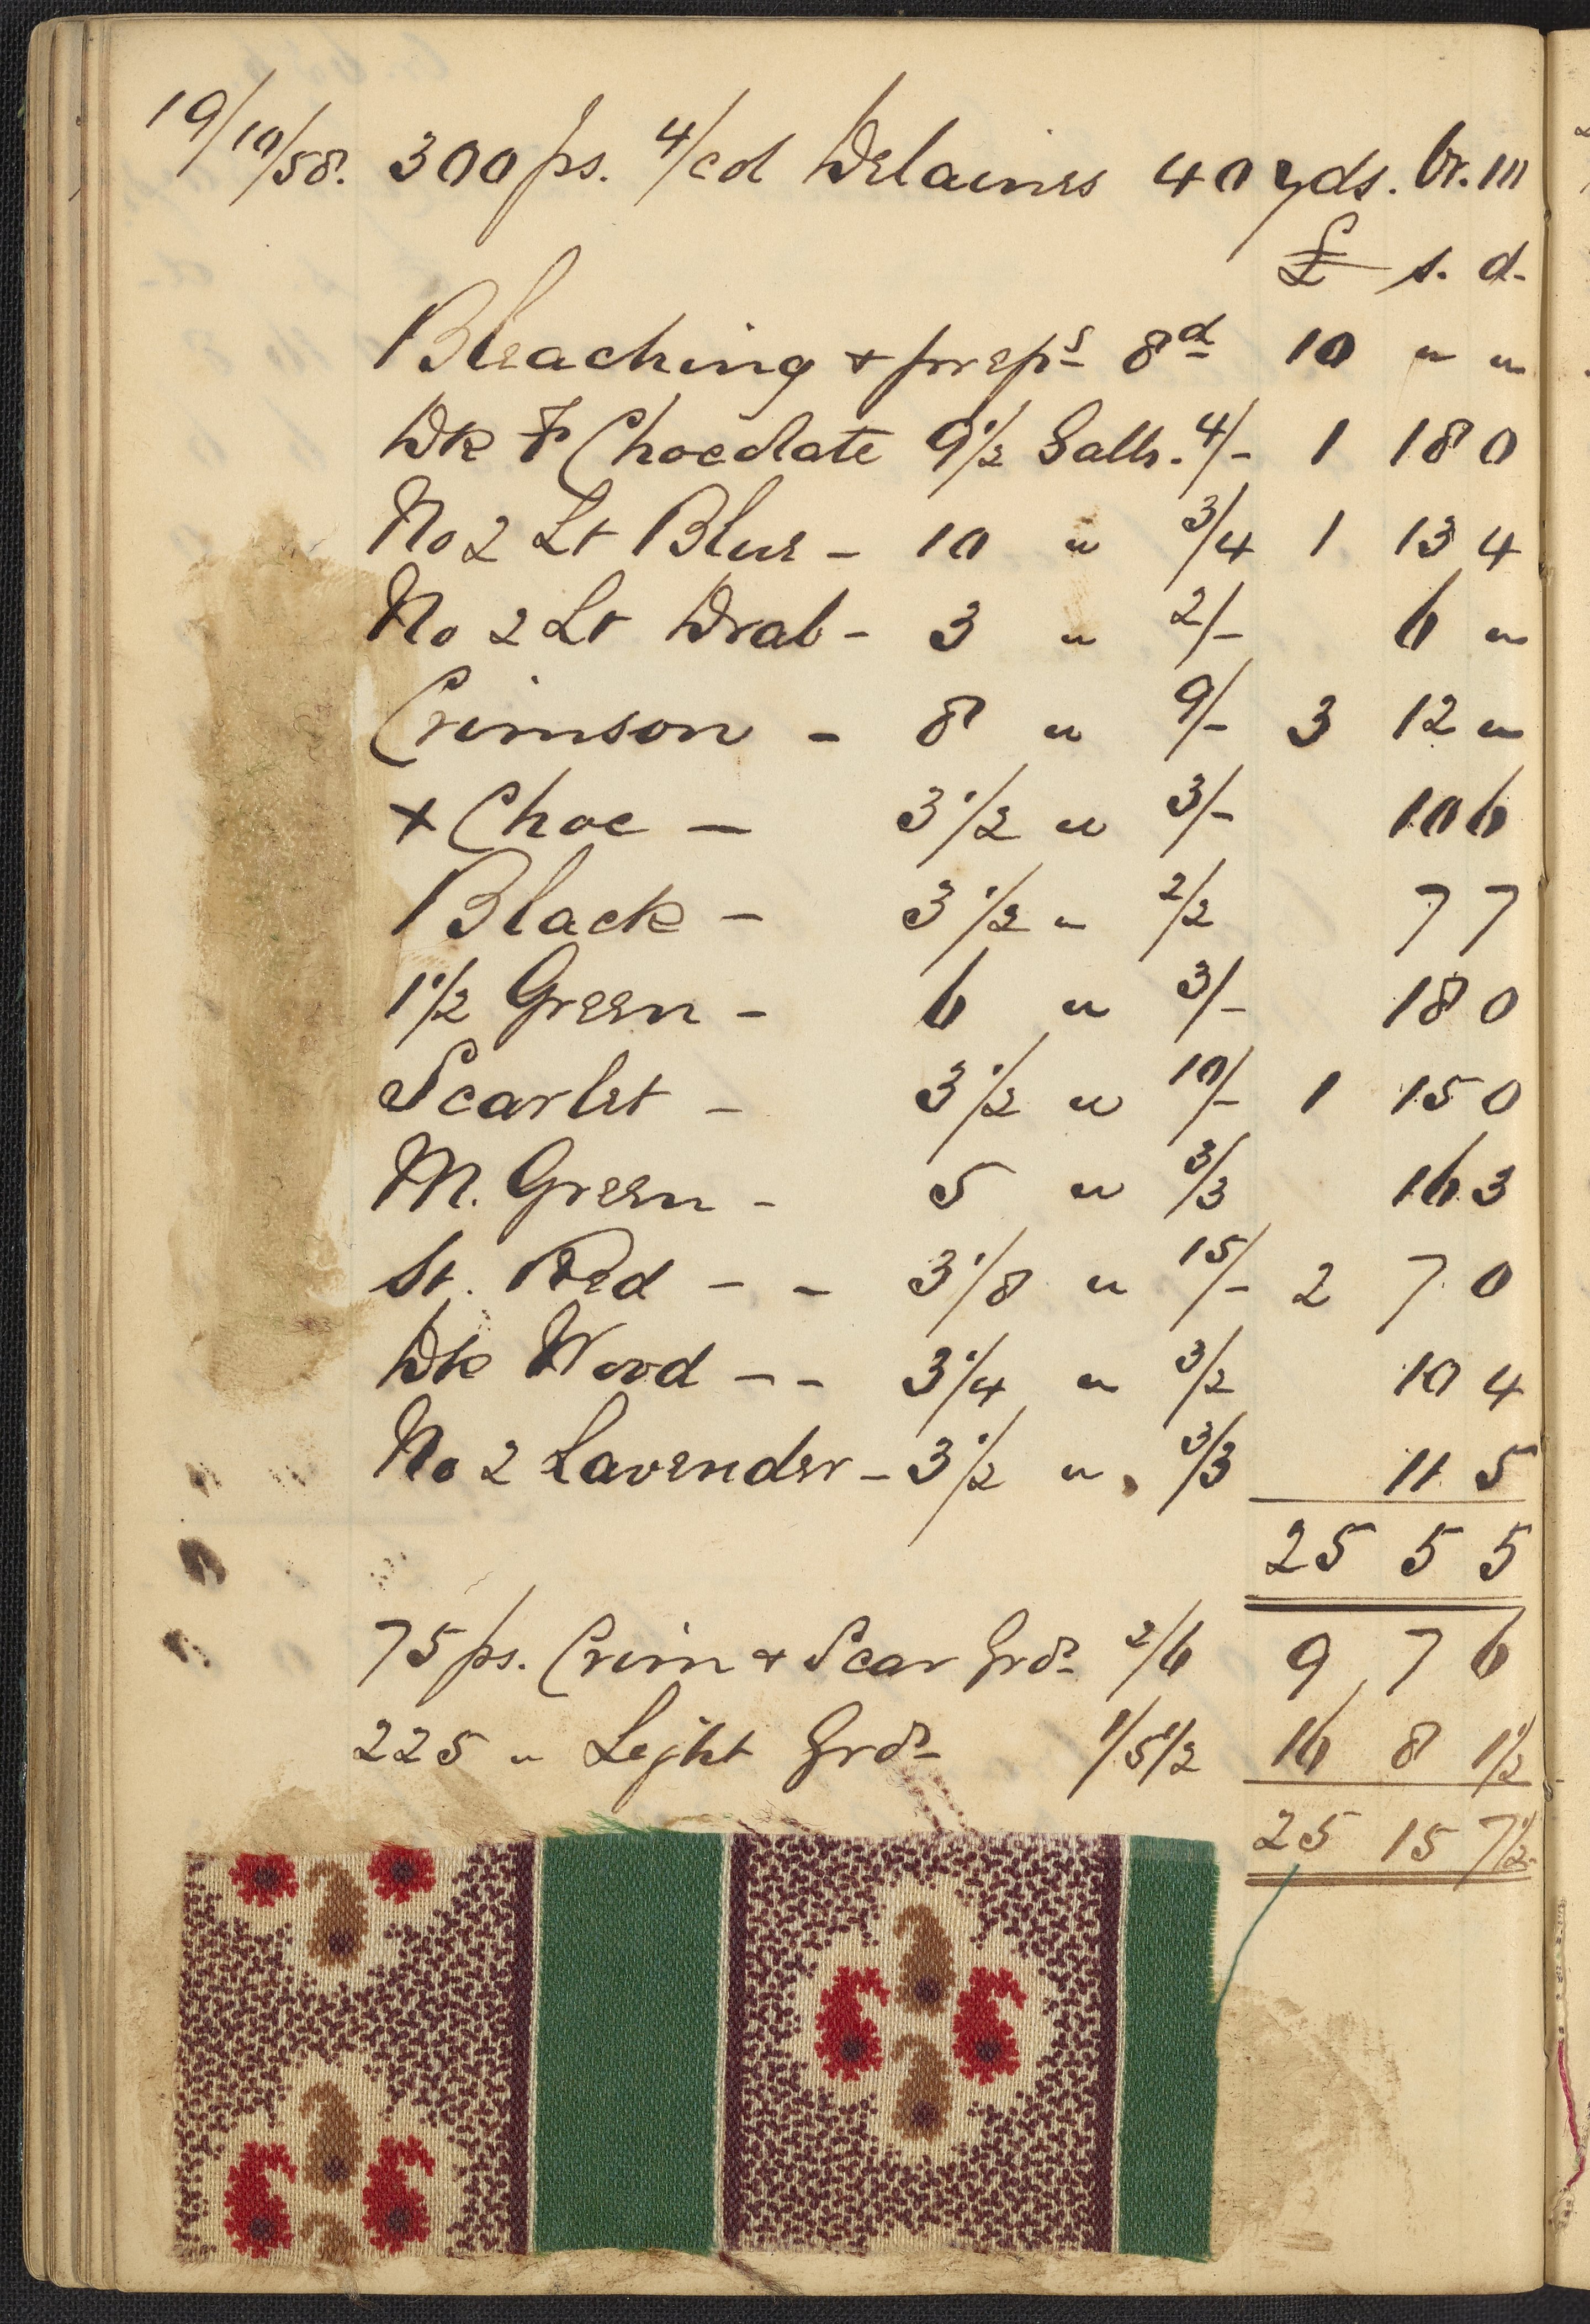 19/10/58. 300 ps. 4/cd Delaines 40 yds. Cr. 111
£ s. d.
Bleaching + prepg 8d 10 " "
Dk F Chocolate 9 1/2 Galls. 4/- 1 18 0
No 2 Lt Blue - 10 " 3/4 1 13 4
No 2 Lt Drab - 3 " 2/- 6 "
Crimson - 8 " 9/- 3 12 "
+ Choc - 3 1/2 " 3/- 10 6
Black - 3 1/2 " 2/2 7 7
1 1/2 Green - 6 " 3/- 18 0
Scarlet - 3 1/2 " 10/- 1 15 0
M. Green - 5 " 3/3 16 3
St. Red - - 3 1/8 " 15/- 2 7 0
Dk Wood - - 3 1/4 " 3/2 10 4
No 2 Lavender - 3 1/2 " 3/3 11 5
25 5 5
75 ps. Crim + Scar Grds 2/6 9 7 6
225 " Light Grds 1/5 1/2 16 8 1 1/2
25 15 7 1/2